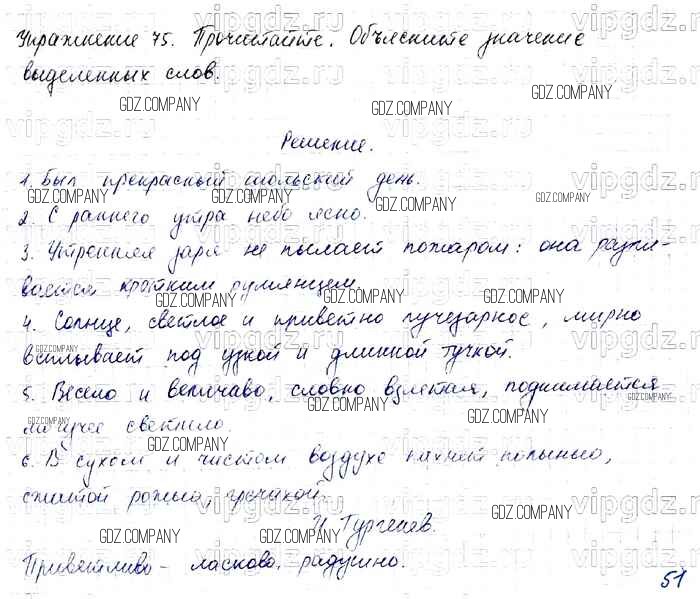 Упражнение 75. Прочитайте. Объясните значение
выделенных слов.
Решение.
1. Был прекрасный июльский день.
2. С раннего утра небо ясно.
3. Утренняя заря не пылает пожаром: она разли-
вается кротким румянцем.
4. Солнце, светлое и приветно лучезарное, мирно
всплывает под узкой и длинной тучкой.
5. Весело и величаво, словно взлетая, поднимается
могучее светило.
6. В сухом и чистом воздухе пахнет полынью,
сжатой рожью, гречихой.
И. Тургенев.
Приветливо – ласково, радушно.
51